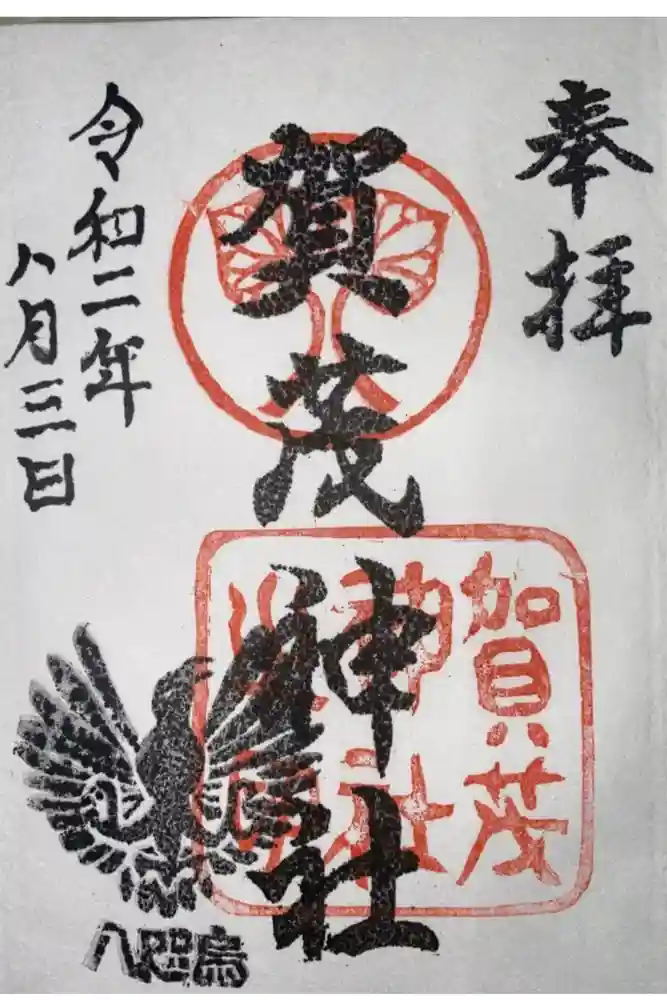 奉拝
賀茂神社
賀茂
神社
令和二年
八月三日
八咫烏